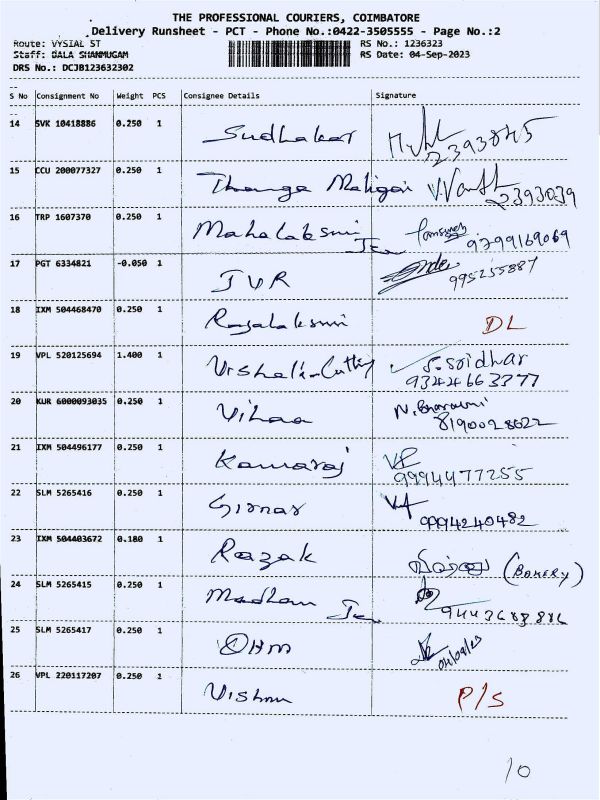 THE PROFESSIONAL COURIERS, COIMBATORE
Delivery Runsheet - PCT - Phone No.:0422-3505555 - Page No.:2
Route: VYSIAL ST RS No.: 1236323
Staff: BALA SHANMUGAM RS Date: 04-Sep-2023
DRS No.: DCJB123632302
S No Consignment No Weight PCS Consignee Details Signature
14 SVK 10418886 0.250 1 Sudhakar
2393845
15 CCU 200077327 0.250 1 Thanga Maligai
2393039
16 TRP 1607370 0.250 1 Mahalakshmi
9799169069
17 PGT 6334821 -0.050 1 JVR
995255887
18 IXM 504468470 0.250 1 Rajalakshmi DL
19 VPL 520125694 1.400 1 Vishal Cutting S. Sridhar
9344663377
20 KUR 6000093035 0.250 1 Vihaa
8190028622
21 IXM 504496177 0.250 1 Kamaraj VP
9994477255
22 SLM 5265416 0.250 1 Girnar
9994240482
23 IXM 504403672 0.180 1 Razak (BAKERY)
24 SLM 5265415 0.250 1 Madham
9443688886
25 SLM 5265417 0.250 1 OHM
04/09/23
26 VPL 220117207 0.250 1 Vishnu P/S
10